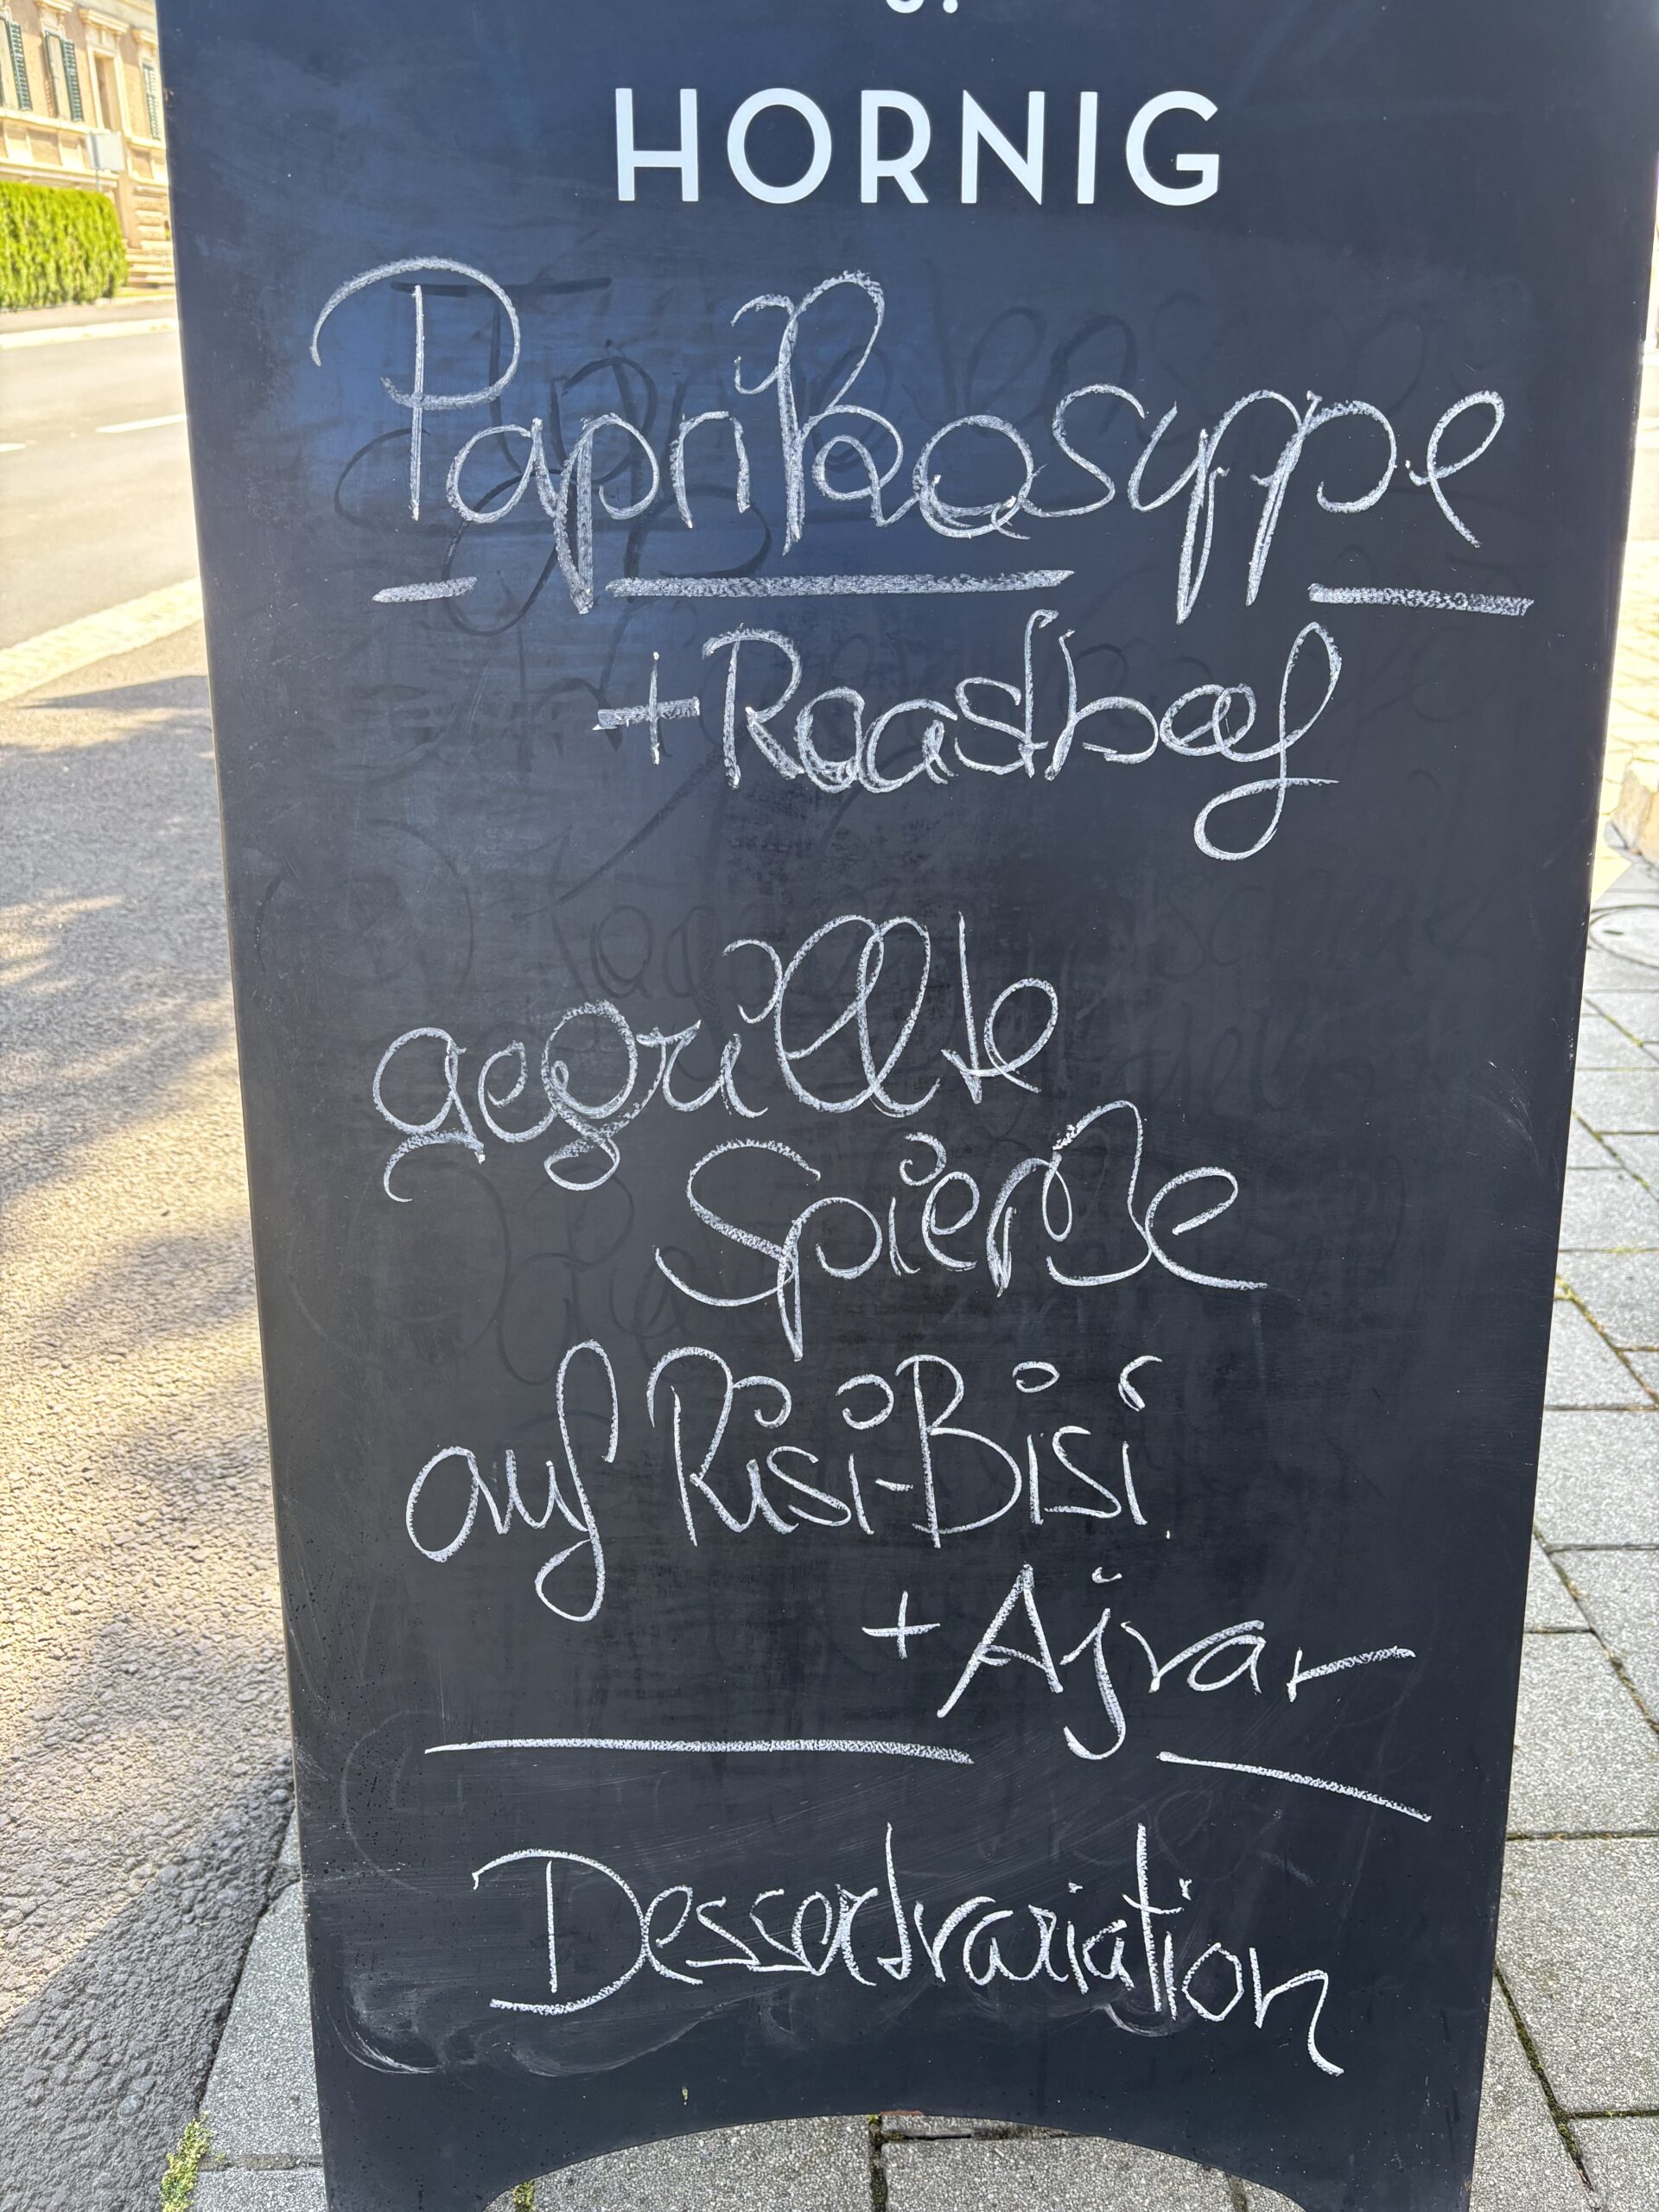 J.
HORNIG
Paprikasuppe
+ Roastbeef
gegrillte
Spieße
auf Risi-Bisi
+ Ajvar
Dessertvariation